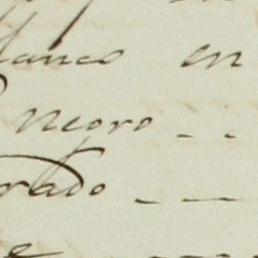 lanco en
Negro - -
rado - - -